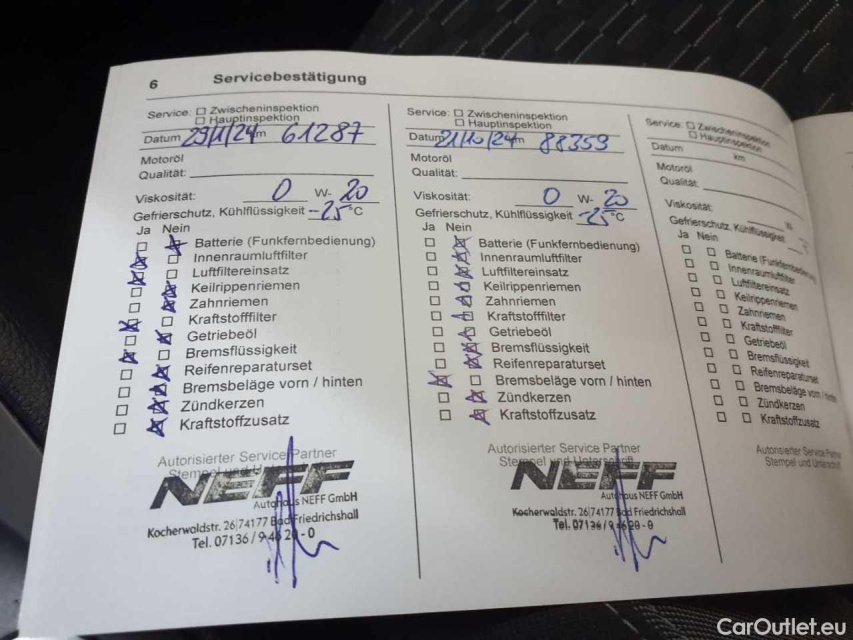 6 Servicebestätigung
Service: Zwischeninspektion
Hauptinspektion
Datum 29/1/24 km 61287
Motoröl
Qualität:
Viskosität: 0 W- 20
Gefrierschutz, Kühlflüssigkeit -25 °C
Ja Nein
Batterie (Funkfernbedienung)
Innenraumluftfilter
Luftfiltereinsatz
Keilrippenriemen
Zahnriemen
Kraftstofffilter
Getriebeöl
Bremsflüssigkeit
Reifenreparaturset
Bremsbeläge vorn / hinten
Zündkerzen
Kraftstoffzusatz
Autorisierter Service Partner
Stempel und
NEFF
Autohaus NEFF GmbH
Kocherwaldstr. 26 74177 Bad Friedrichshall
Tel. 07136 / 9 46 20 - 0
Service: Zwischeninspektion
Hauptinspektion
Datum 21/10/24 km 88359
Motoröl
Qualität:
Viskosität: 0 W- 20
Gefrierschutz, Kühlflüssigkeit -25 °C
Ja Nein
Batterie (Funkfernbedienung)
Innenraumluftfilter
Luftfiltereinsatz
Keilrippenriemen
Zahnriemen
Kraftstofffilter
Getriebeöl
Bremsflüssigkeit
Reifenreparaturset
Bremsbeläge vorn / hinten
Zündkerzen
Kraftstoffzusatz
Autorisierter Service Partner
Stempel und Unterschrift
NEFF
Autohaus NEFF GmbH
Kocherwaldstr. 26 74177 Bad Friedrichshall
Tel. 07136 / 9 46 20 - 0
Service: Zwischeninspektion
Hauptinspektion
Datum km
Motoröl
Qualität:
Viskosität: W
Gefrierschutz, Kühlflüssigkeit °C
Ja Nein
Batterie (Funkfernbedienung)
Innenraumluftfilter
Luftfiltereinsatz
Keilrippenriemen
Zahnriemen
Kraftstofffilter
Getriebeöl
Bremsflüssigkeit
Reifenreparaturset
Bremsbeläge vorn /
Zündkerzen
Kraftstoffzusatz
Autorisierter Service
Stempel und
CarOutlet.eu